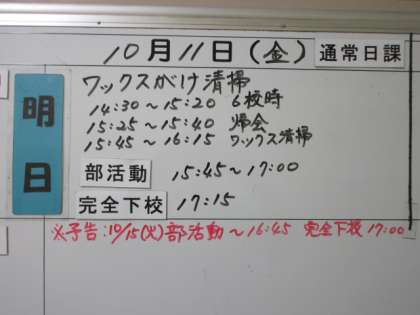 10月11日(金) 通常日課
明日
ワックスがけ清掃
14:30～15:20 6校時
15:25～15:40 帰会
15:45～16:15 ワックス清掃
部活動 15:45～17:00
完全下校 17:15
※予告:10/15(火)部活動～16:45 完全下校17:00